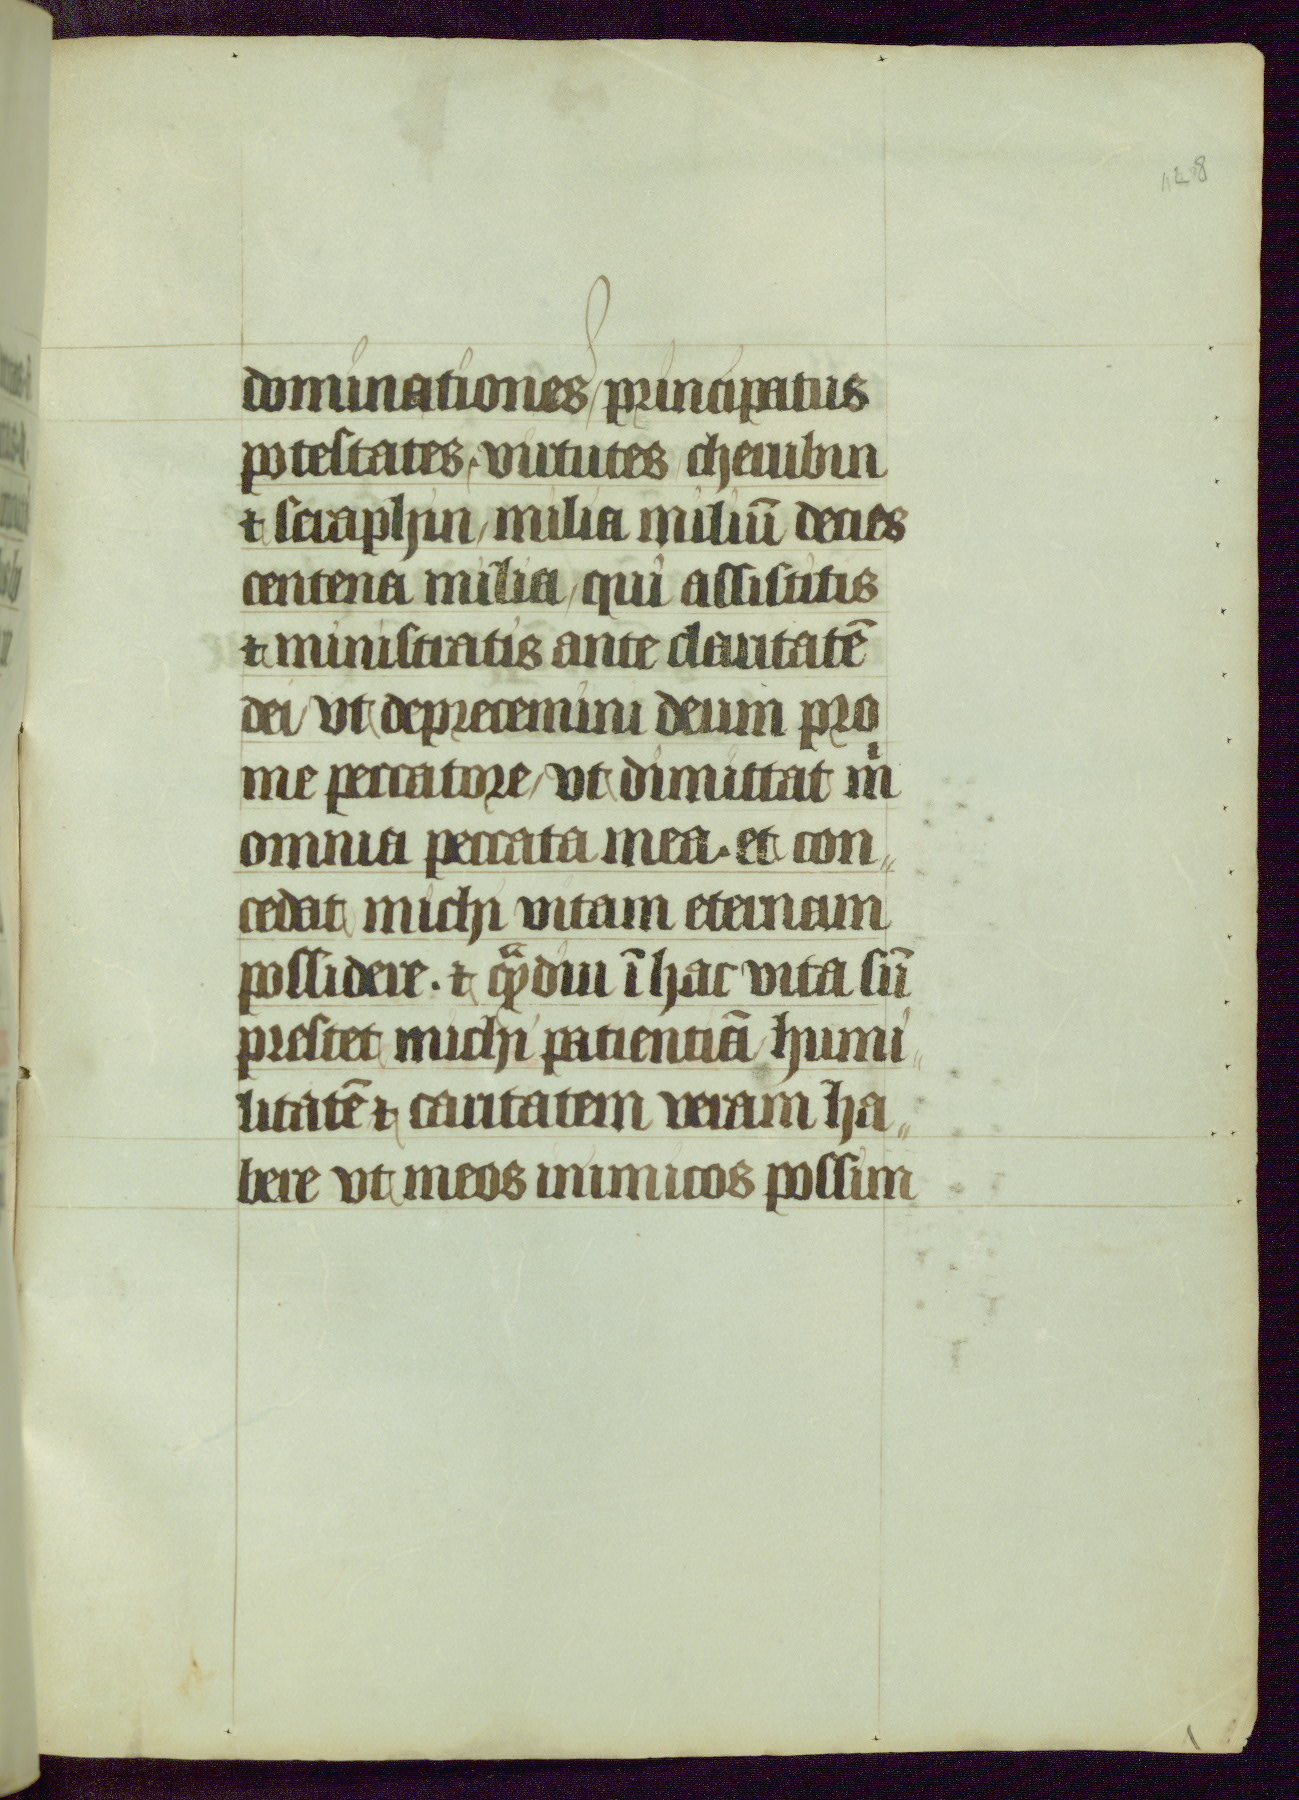 128
dominationes / principatus
potestates . virtutes cherubin
⁊ seraphin / milia miliū decies
centena milia / qui assistitis
⁊ ministratis ante claritatē
dei / vt deprecemini deum pro
me peccatore / vt dimittat mͥ
omnia peccata mea . et con〃
cedat michi vitam eternam
possidere . ⁊ qͣ̄diu ī hac vita sū
prestet michi patientiā / humi〃
litatē ⁊ caritatem veram ha〃
bere vt meos inimicos possim